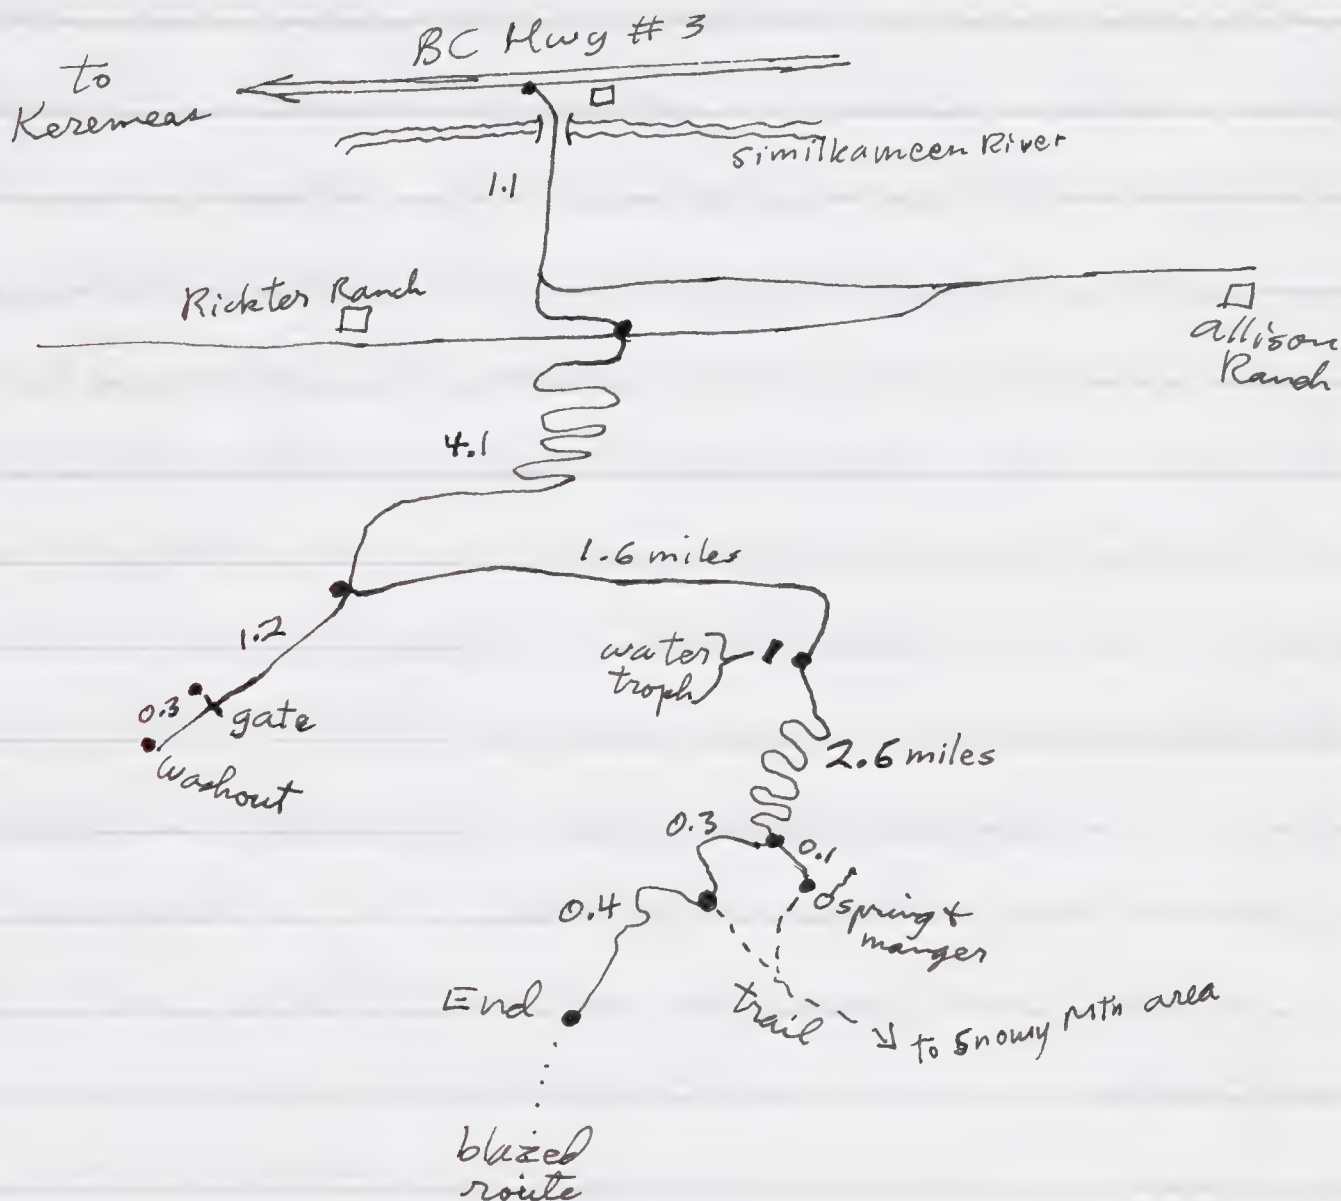 BC Hwy # 3
to
Keremeas
Similkameen River
1.1
Rickter Ranch
allison
Ranch
4.1
1.6 miles
1.2
water
troph
0.3
gate
washout
2.6 miles
0.3
0.1
0.4
spring &
manger
End
trail
to Snowy Mtn area
blazed
route